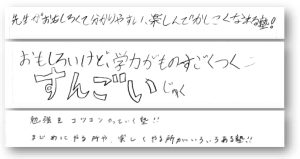 先生がおもしろくて分かりやすい、楽しんでかしこくなれる塾!!
おもしろいけど、学力がものすごくつく
すんごい じゅく
勉強を コツコツやっていく塾!!
まじめにやる所や、楽しくやる所がいろいろある塾!!